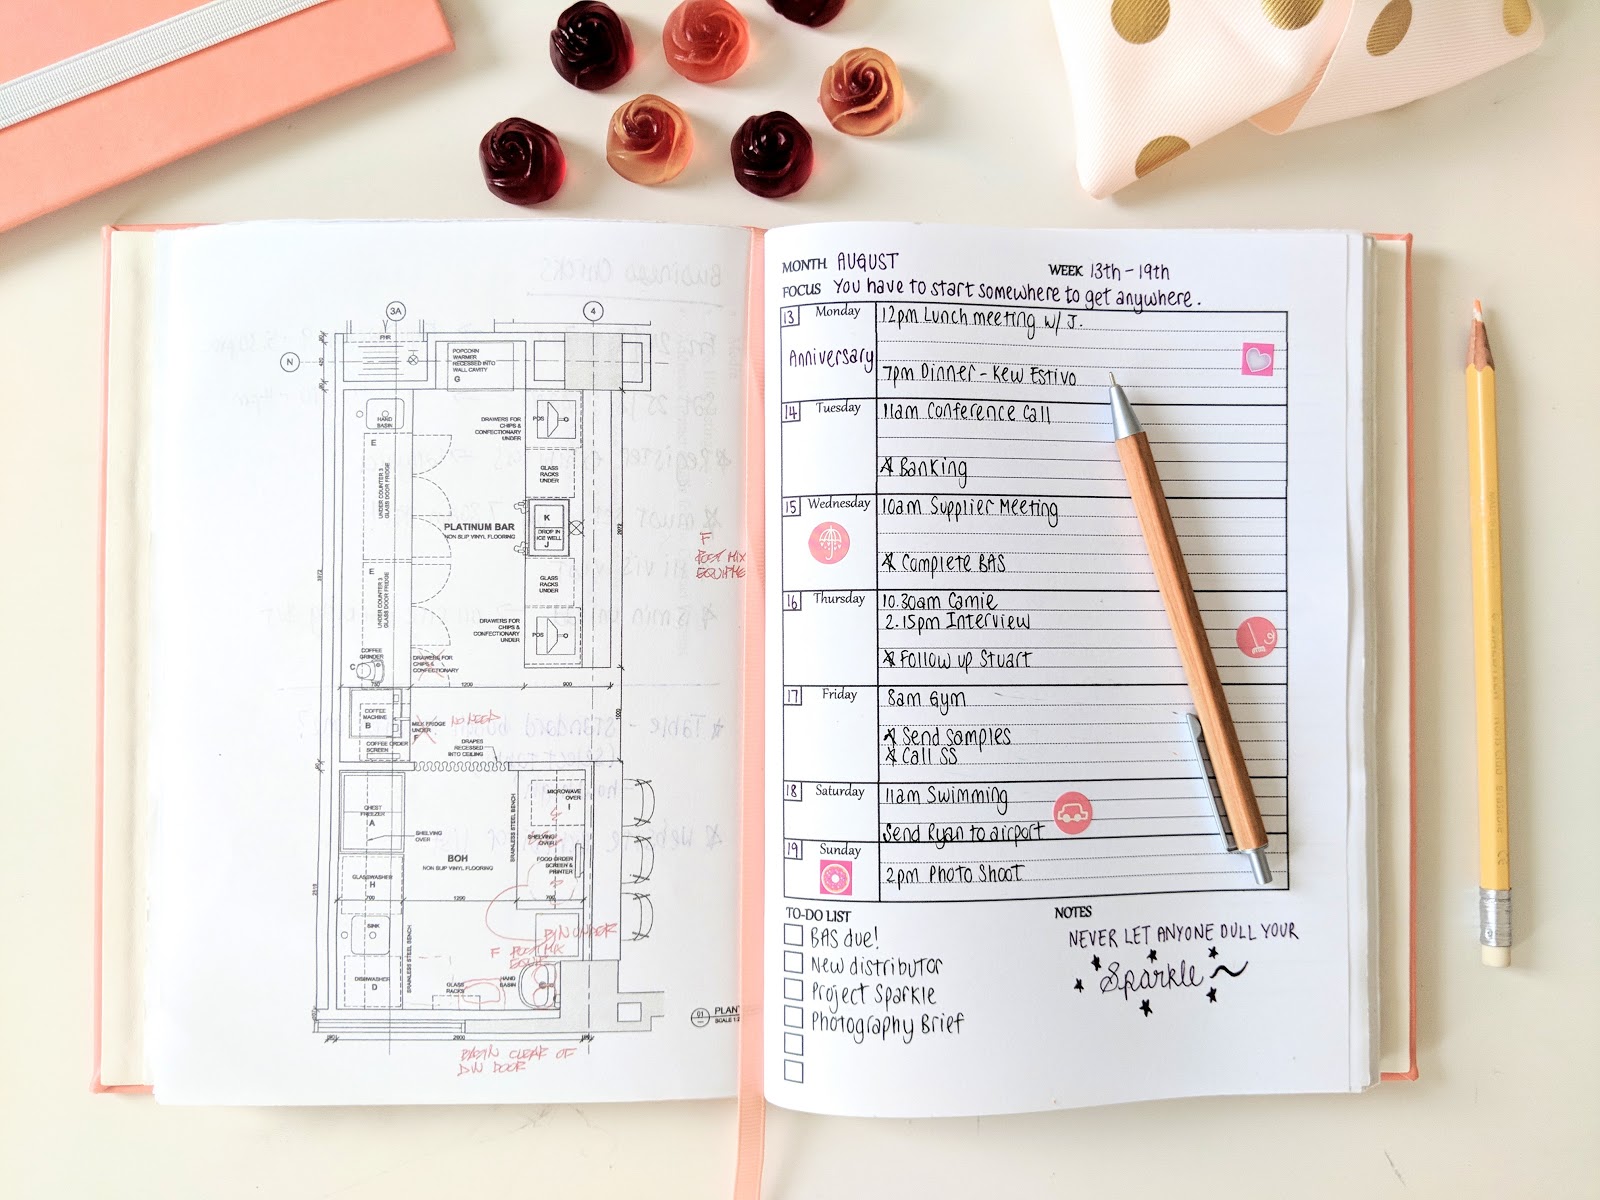 3A
4
N
FHR
POPCORN
WARMER
RECESSED INTO
WALL CAVITY
G
HAND
BASIN
DRAWERS FOR
CHIPS &
CONFECTIONARY
UNDER
POS
E
UNDER COUNTER 3
GLASS DOOR FRIDGE
GLASS
RACKS
UNDER
PLATINUM BAR
NON SLIP VINYL FLOORING
K
DROP IN
ICE WELL
J
F
POST MIX
E
UNDER COUNTER 3
GLASS DOOR FRIDGE
GLASS
RACKS
UNDER
DRAWERS FOR
CHIPS &
CONFECTIONARY
UNDER
POS
COFFEE
GRINDER
C
DRAWERS FOR
CHIPS &
CONFECTIONARY
750
1200
900
COFFEE
MACHINE
B
MILK FRIDGE
UNDER
F
NO NEED
COFFEE ORDER
SCREEN
DRAPES
RECESSED
INTO CEILING
CHEST
FREEZER
A
SHELVING
OVER
STAINLESS STEEL BENCH
MICROWAVE
OVER
I
SHELVING
OVER
BOH
NON SLIP VINYL FLOORING
FOOD ORDER
SCREEN &
PRINTER
GLASSWASHER
H
700
1200
700
SINK
STAINLESS STEEL BENCH
BIN UNDER
F POST MIX
DISHWASHER
D
GLASS
RACKS
HAND
BASIN
01
PLAN
SCALE 1:2
2600
BASIN CLEAR OF
DW DOOR
MONTH AUGUST
WEEK 13th - 19th
FOCUS You have to start somewhere to get anywhere.
13 Monday 12pm Lunch meeting w/ J.
Anniversary
7pm Dinner - Kew Estivo
14 Tuesday 11am Conference Call
Banking
15 Wednesday 10am Supplier Meeting
Complete BAS
16 Thursday 10.30am Camie
2.15pm Interview
Follow up Stuart
17 Friday 8am Gym
Send Samples
Call SS
18 Saturday 11am Swimming
Send Ryan to airport
19 Sunday
2pm Photo Shoot
TO-DO LIST
BAS due!
New distributor
Project Sparkle
Photography Brief
NOTES
NEVER LET ANYONE DULL YOUR
Sparkle